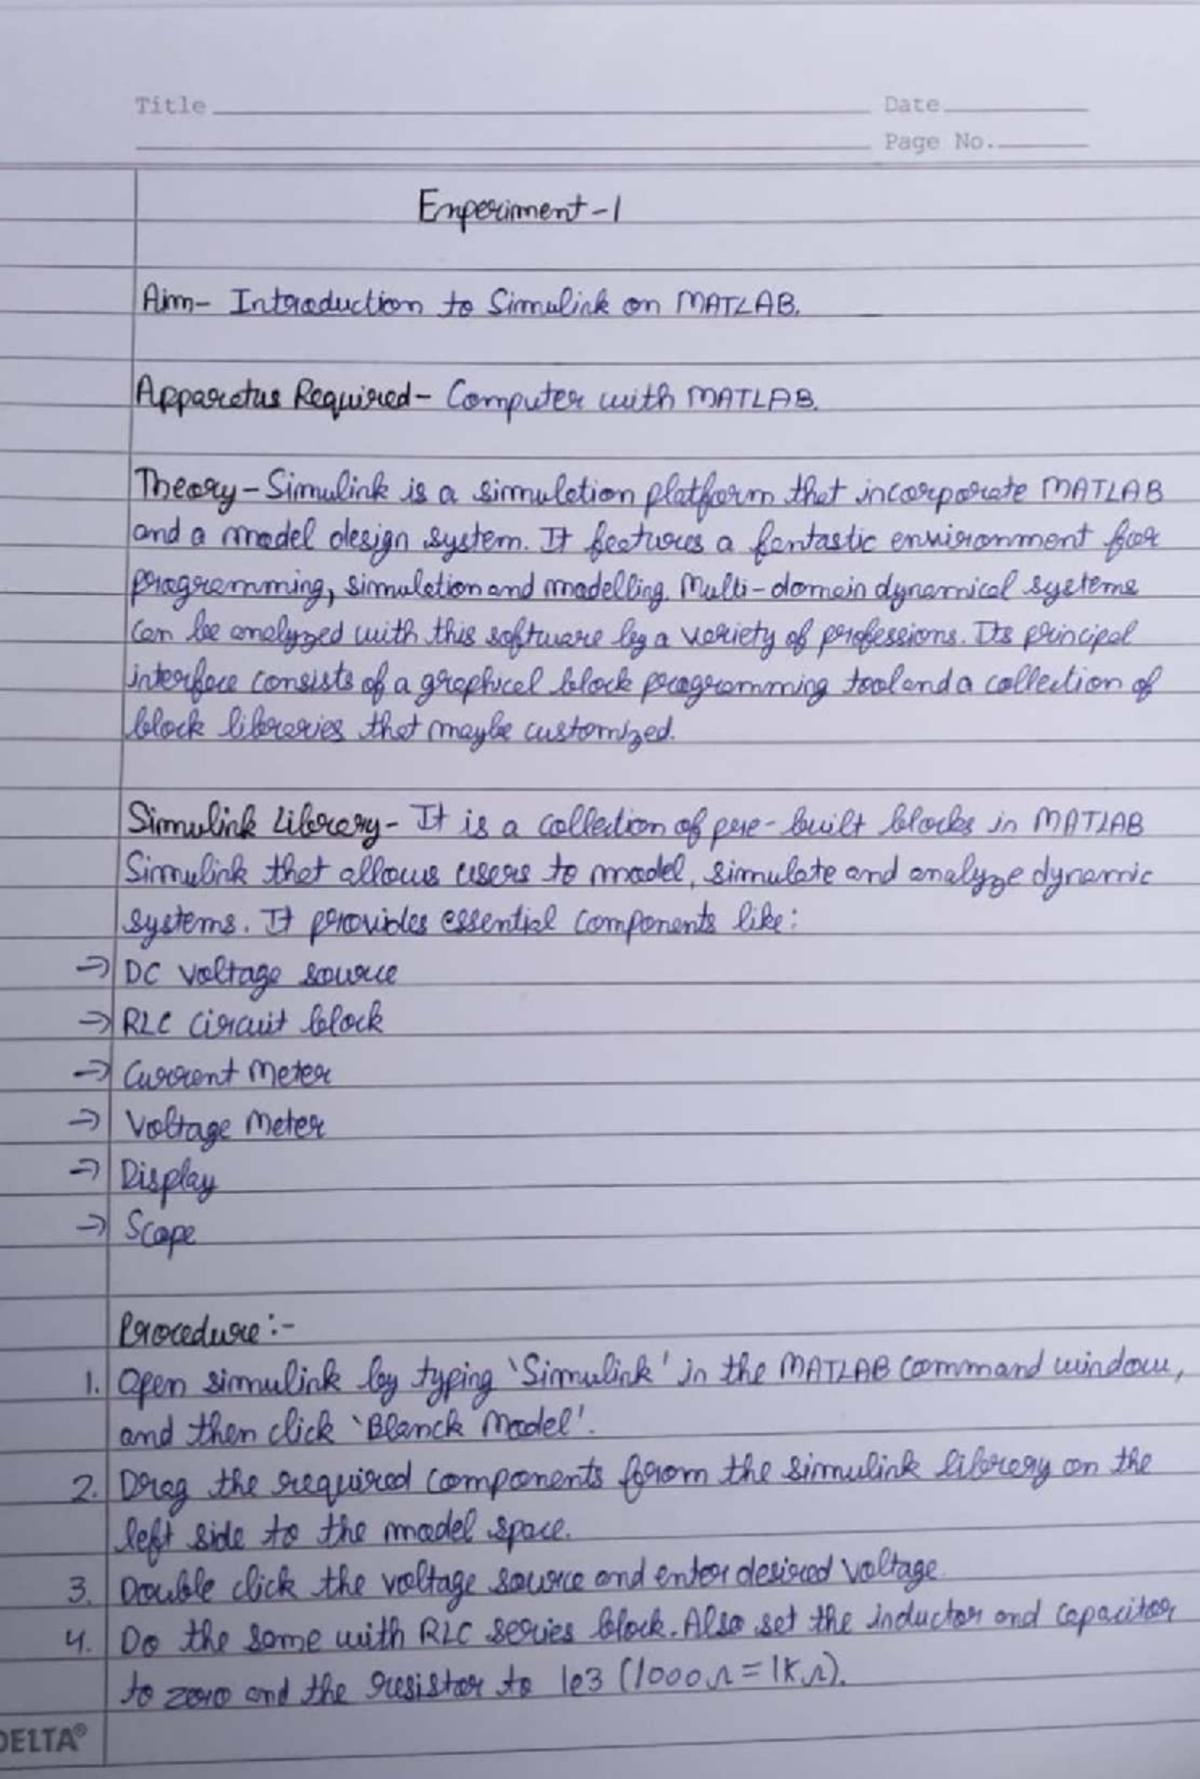 Title
Date
Page No.
Experiment-1
Aim- Introduction to Simulink on MATLAB.
Apparatus Required- Computer with MATLAB.
Theory- Simulink is a simulation platform that incorporate MATLAB
and a model design system. It features a fantastic environment for
programming, simulation and modelling. Multi-domain dynamical systems
can be analyzed with this software by a variety of professions. Its principal
interface consists of a graphical block programming tool and a collection of
block libraries that maybe customized.
Simulink Library- It is a collection of pre-built blocks in MATLAB
Simulink that allows users to model, simulate and analyze dynamic
systems. It provides essential components like:
⇒ DC Voltage source
⇒ RLC circuit block
⇒ Current Meter
⇒ Voltage Meter
⇒ Display
⇒ Scope
Procedure:-
1. Open simulink by typing 'Simulink' in the MATLAB command window,
and then click 'Blanck Model'.
2. Drag the required components from the simulink library on the
left side to the model space.
3. Double click the voltage source and enter desired voltage
4. Do the same with RLC series block. Also set the inductor and capacitor
to zero and the resistor to 1e3 (1000Ω = 1KΩ).
DELTA®